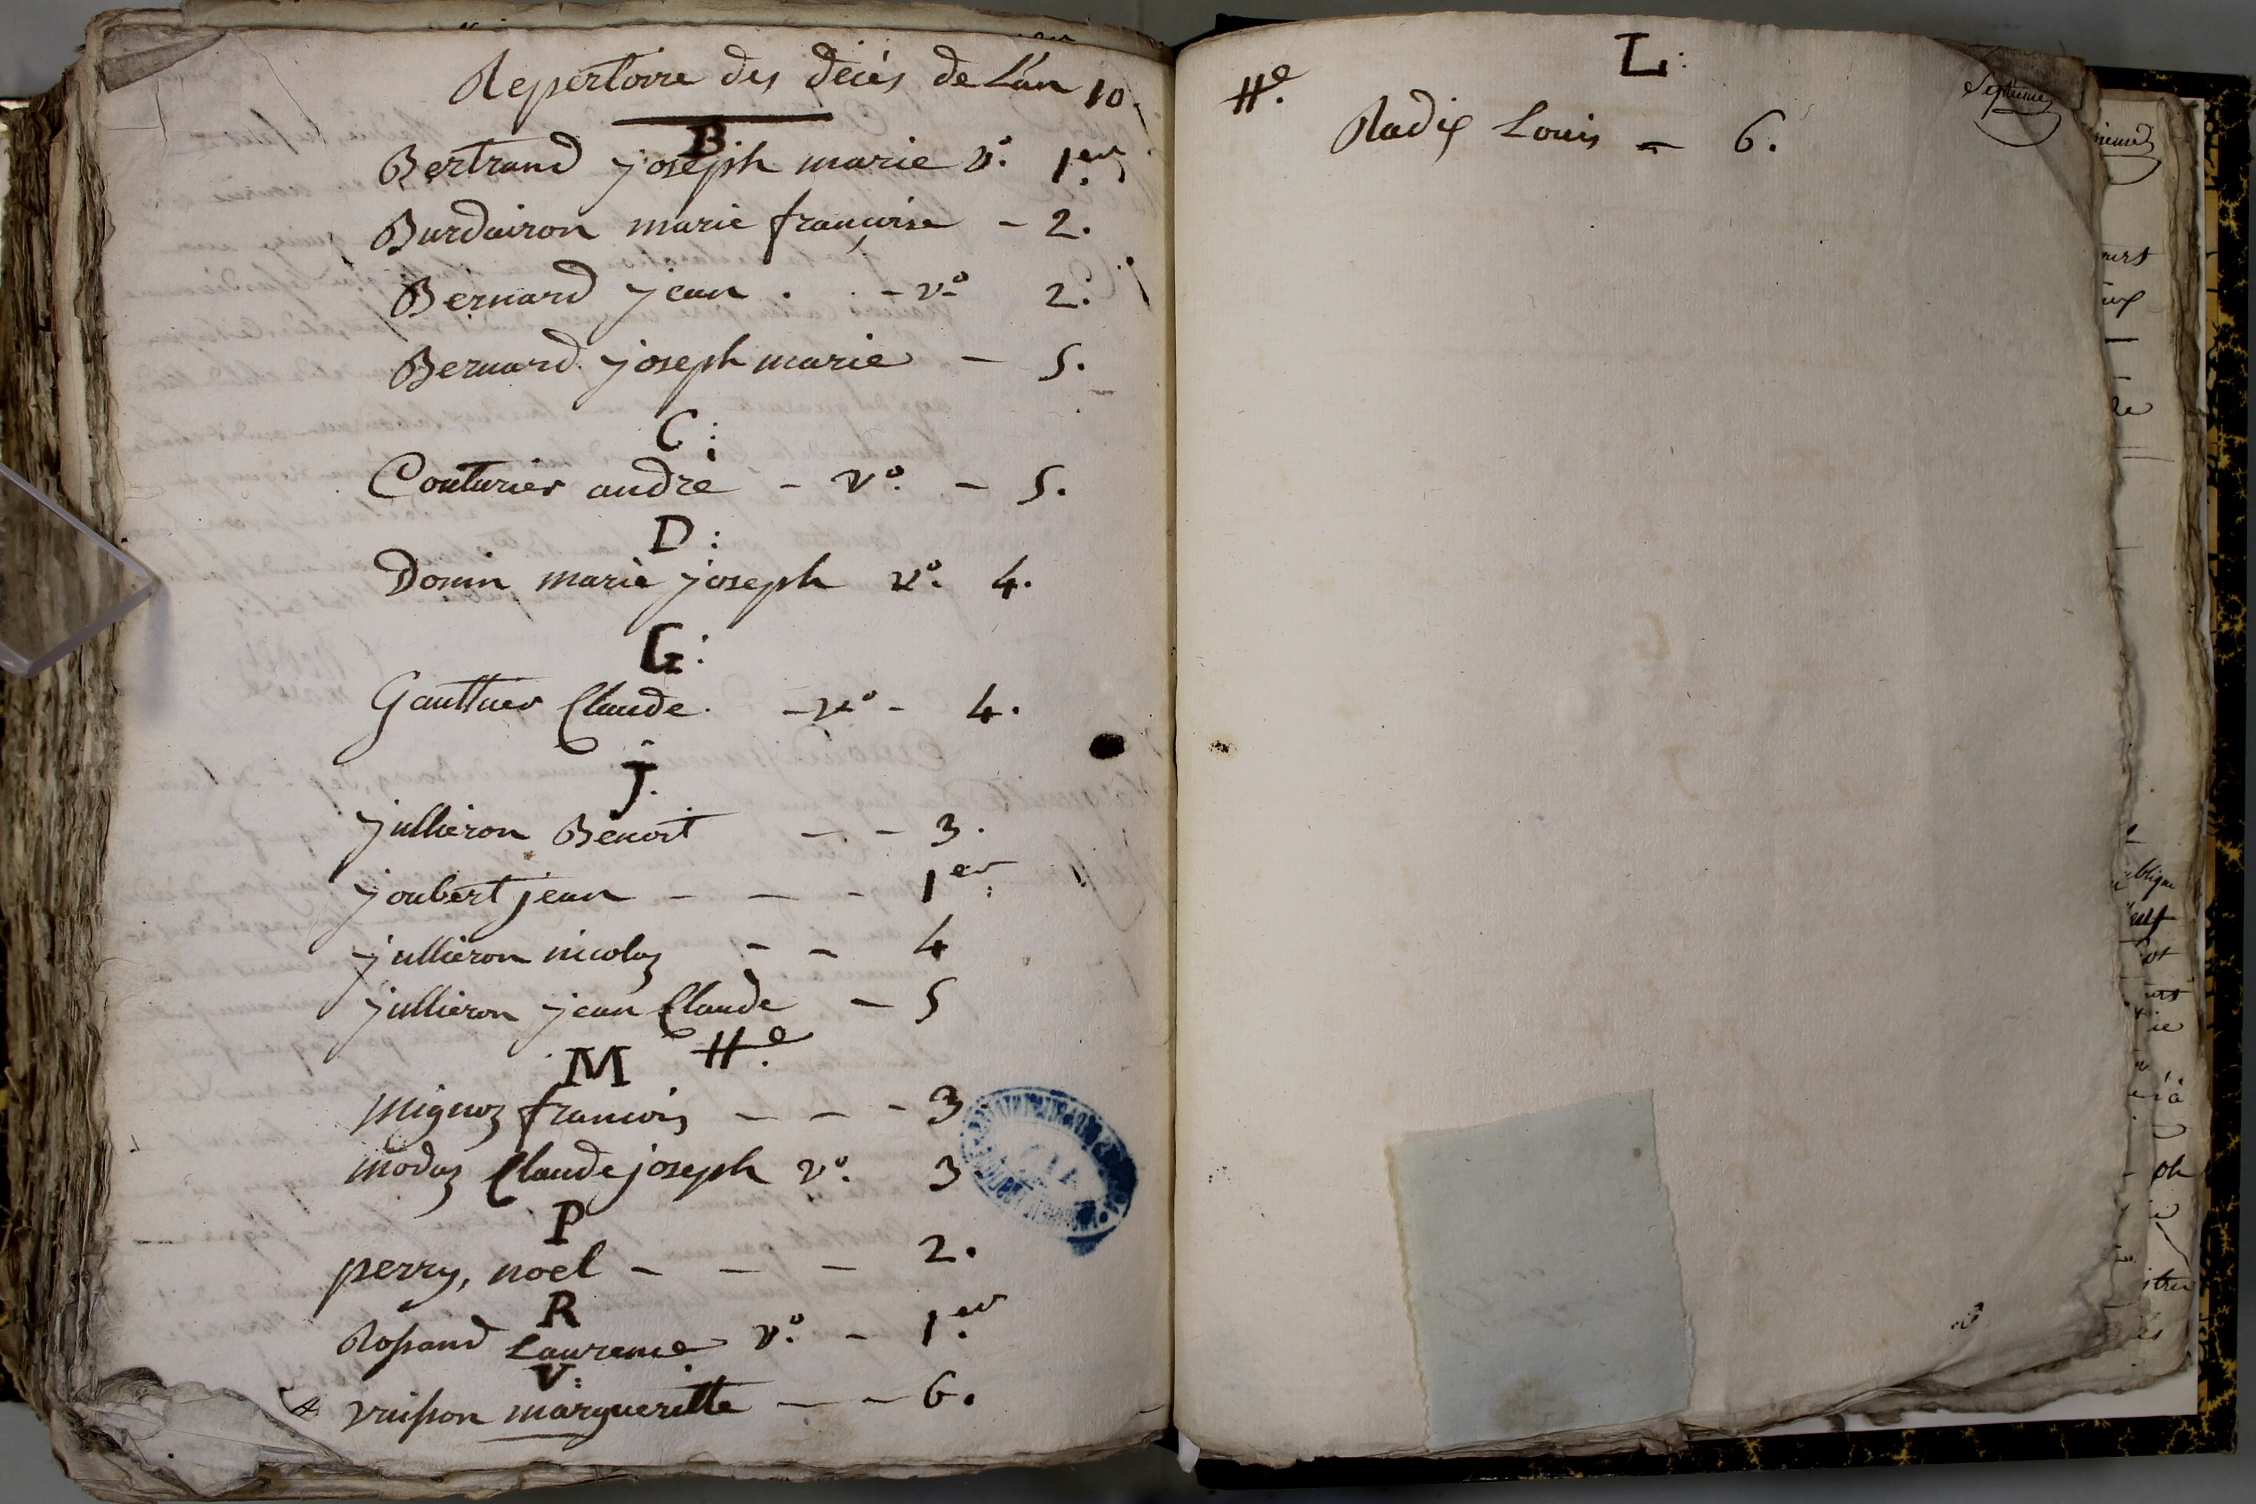 Repertoire des décés de L'an 10.
B
Bertrand joseph marie v.º 1.er
Burdairon marie françoise - 2.
Bernard jean . . - vº 2.
Bernard joseph marie - 5.
C:
Couturier andré - vº. - 5.
D:
Donin marie joseph vº. 4.
G:
Gauttier Claude. - vº - 4.
J.
jullieron Benoit - - 3.
joubert jean - - - 1.er
jullieron nicolas - - 4
jullieron jean Claude - 5
M H.e
mignoz françois - - - 3
modaz Claude joseph vº. 3
P
perry, noel - - - 2.
R
Rossand Laurence vº. - 1.er
V:
vuisson margueritte - - 6.
H.e
L:
Radix Louis - 6.
Septieme